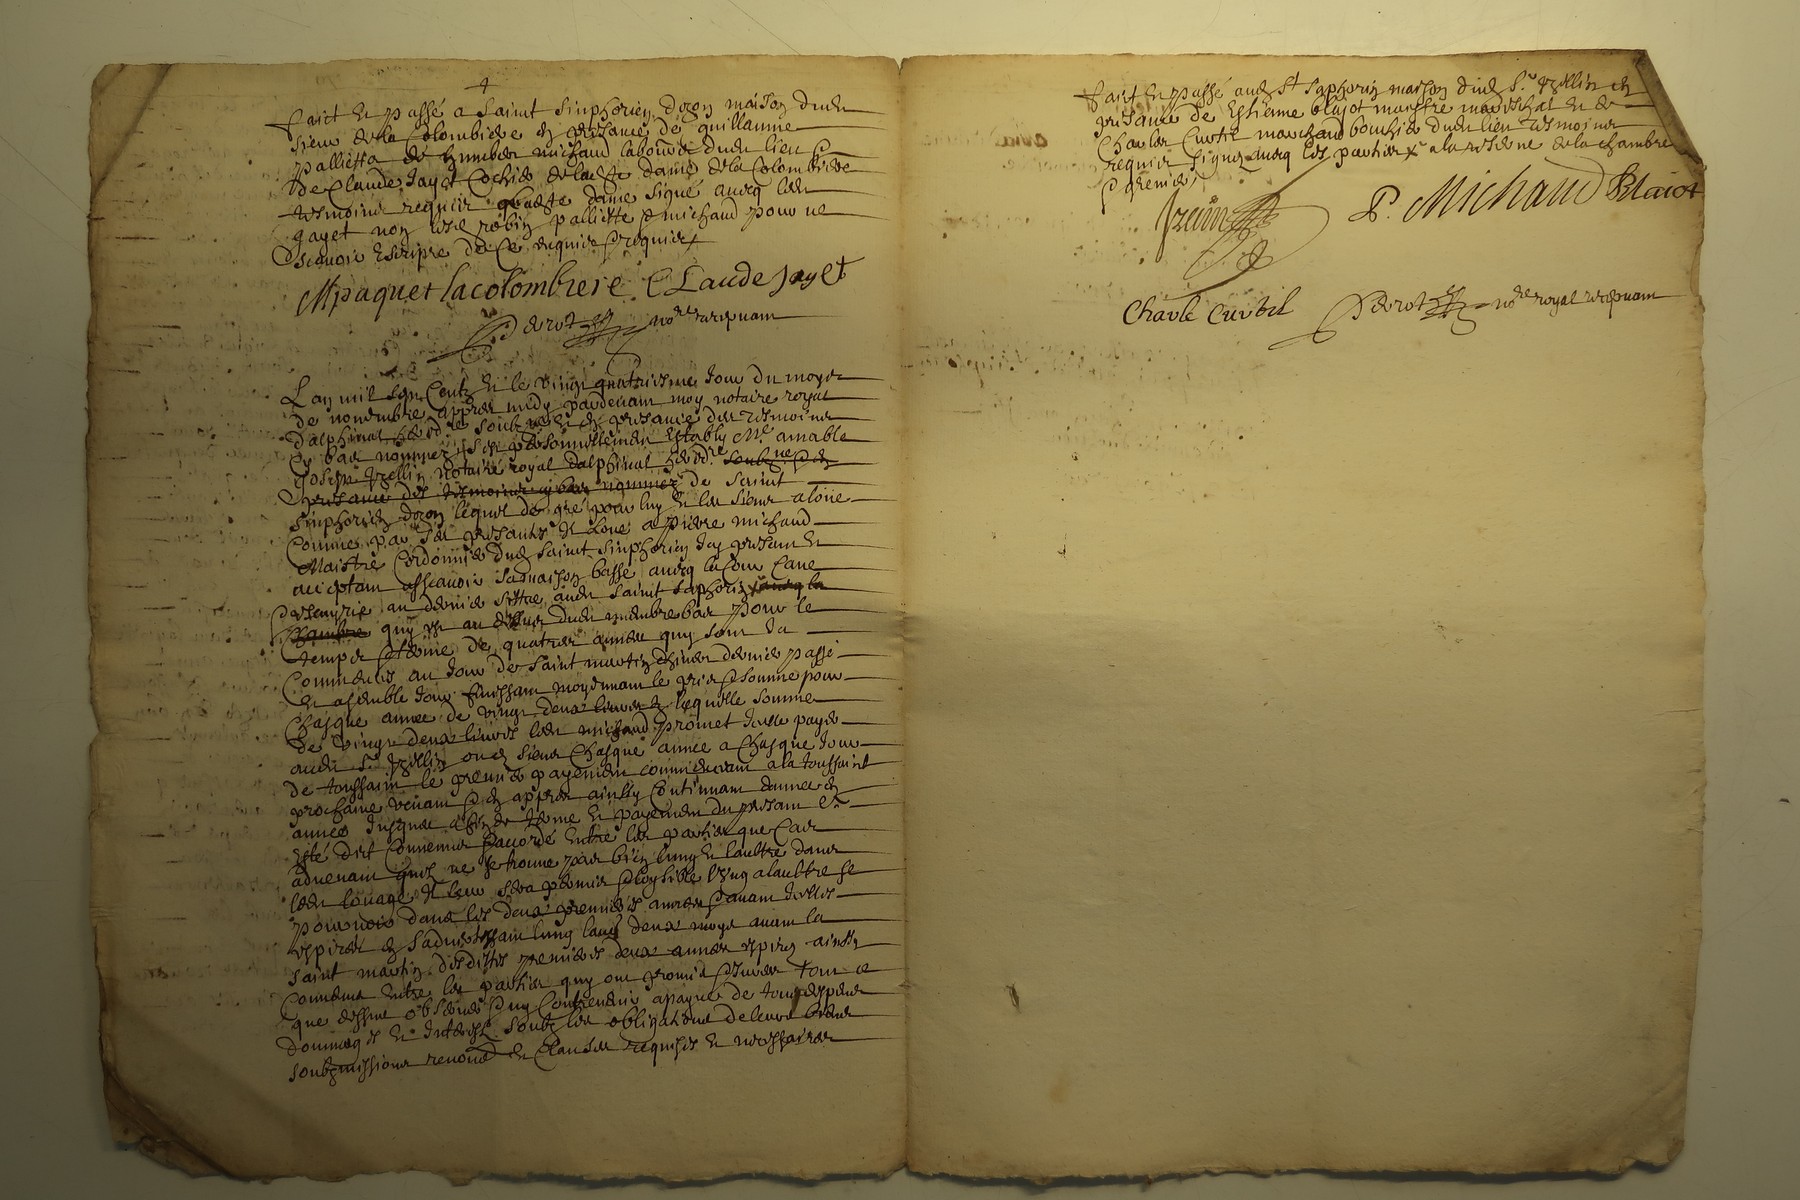 Faict et passé a Saint Sinphorien dozon maison dudit
sieur de la Colombiere en presance de guillaume
pallietta et humber michaud laboureur dudit lieu &
de Claude Jayet Cochier de ladite dame de la Colombiere
tesmoins requis ladite dame signé avecq ledit
Jayet non lesd robin palliette & michaud pour ne
scavoir escripre de ce enquis & requis
M paquet lacolombiere Claude Jayet
Perrot nore recepvant
L'an mil sept Centz et le vingt quatriesme Jour du moys
de novembre appres midy pardevant moy notaire royal
dalphinal hered.re soubzne et en presance des tesmoins
Cy bas nommez s'est personnellement estably Me. amable
Joseph notaire royal dalphinal hered.re soubzne & en
presance des tesmoins cy bas nommez de Saint
Sinphorien dozon lequel de gré pour luy et les siens a loue
Comme par Ses presantes Il loue a pierre michaud
Maistre Cordonnier dudt Saint Sinphorien Icy presant et
acceptant assavoir sa maison basse avecq la Cour Cave
& escurie au dernier sittue audit Saint Saphorin avecq la
Chambre quy est au dessus dudit membre bas pour le
temps & terme de quatre annees quy sont Ja
Commences au Jour de Saint martin dhiver dernier passé
Et a semble Jour finissant moyennant le prix & somme pour
Chasque annee de vingt deux livres laquelle somme
de vingt deux livres ledit michaud promet Icelle payer
audit Sr. ou es siens Chasque annee a Chasque Jour
de toussaint le premier payement commencant a la toussaint
prochaine venant & en appres ainsy Continuant dannee en
annee Jusques a fin de terme et payement du presant Et a
esté dit Convenu & accordé entre les parties que Cas
advenant quils ne se trouve pas bien lung et laultre dans
ledit louage Il leur sera permis & loysible lung a laultre se
pourvoir dans les deux premieres annees & avant Icelles
expirer en sadvertissant lung lautre deux moys avant la
saint martin desdittes premieres deux annees expires ainsy
Convenu entre les parties quy ont promis & jures tout ce
que dessus observer & ny Contrevenir a payne de tous despens
dommages et Interest soubz les obligations de leurs biens
soubzmissions renonc. et Clauses requises et necessaires
Faict et passé audt St Saphorin maison dudt Sr. en
presance de Estienne blajot maistre mareschal et de
Charles Curtil marchand bouchier dudit lieu tesmoins
requis signez avecq les parties a la reserve de la chambre
& grenier
P. Michaud Blaiot
Charle Curtil Perrot nore royal recepvant